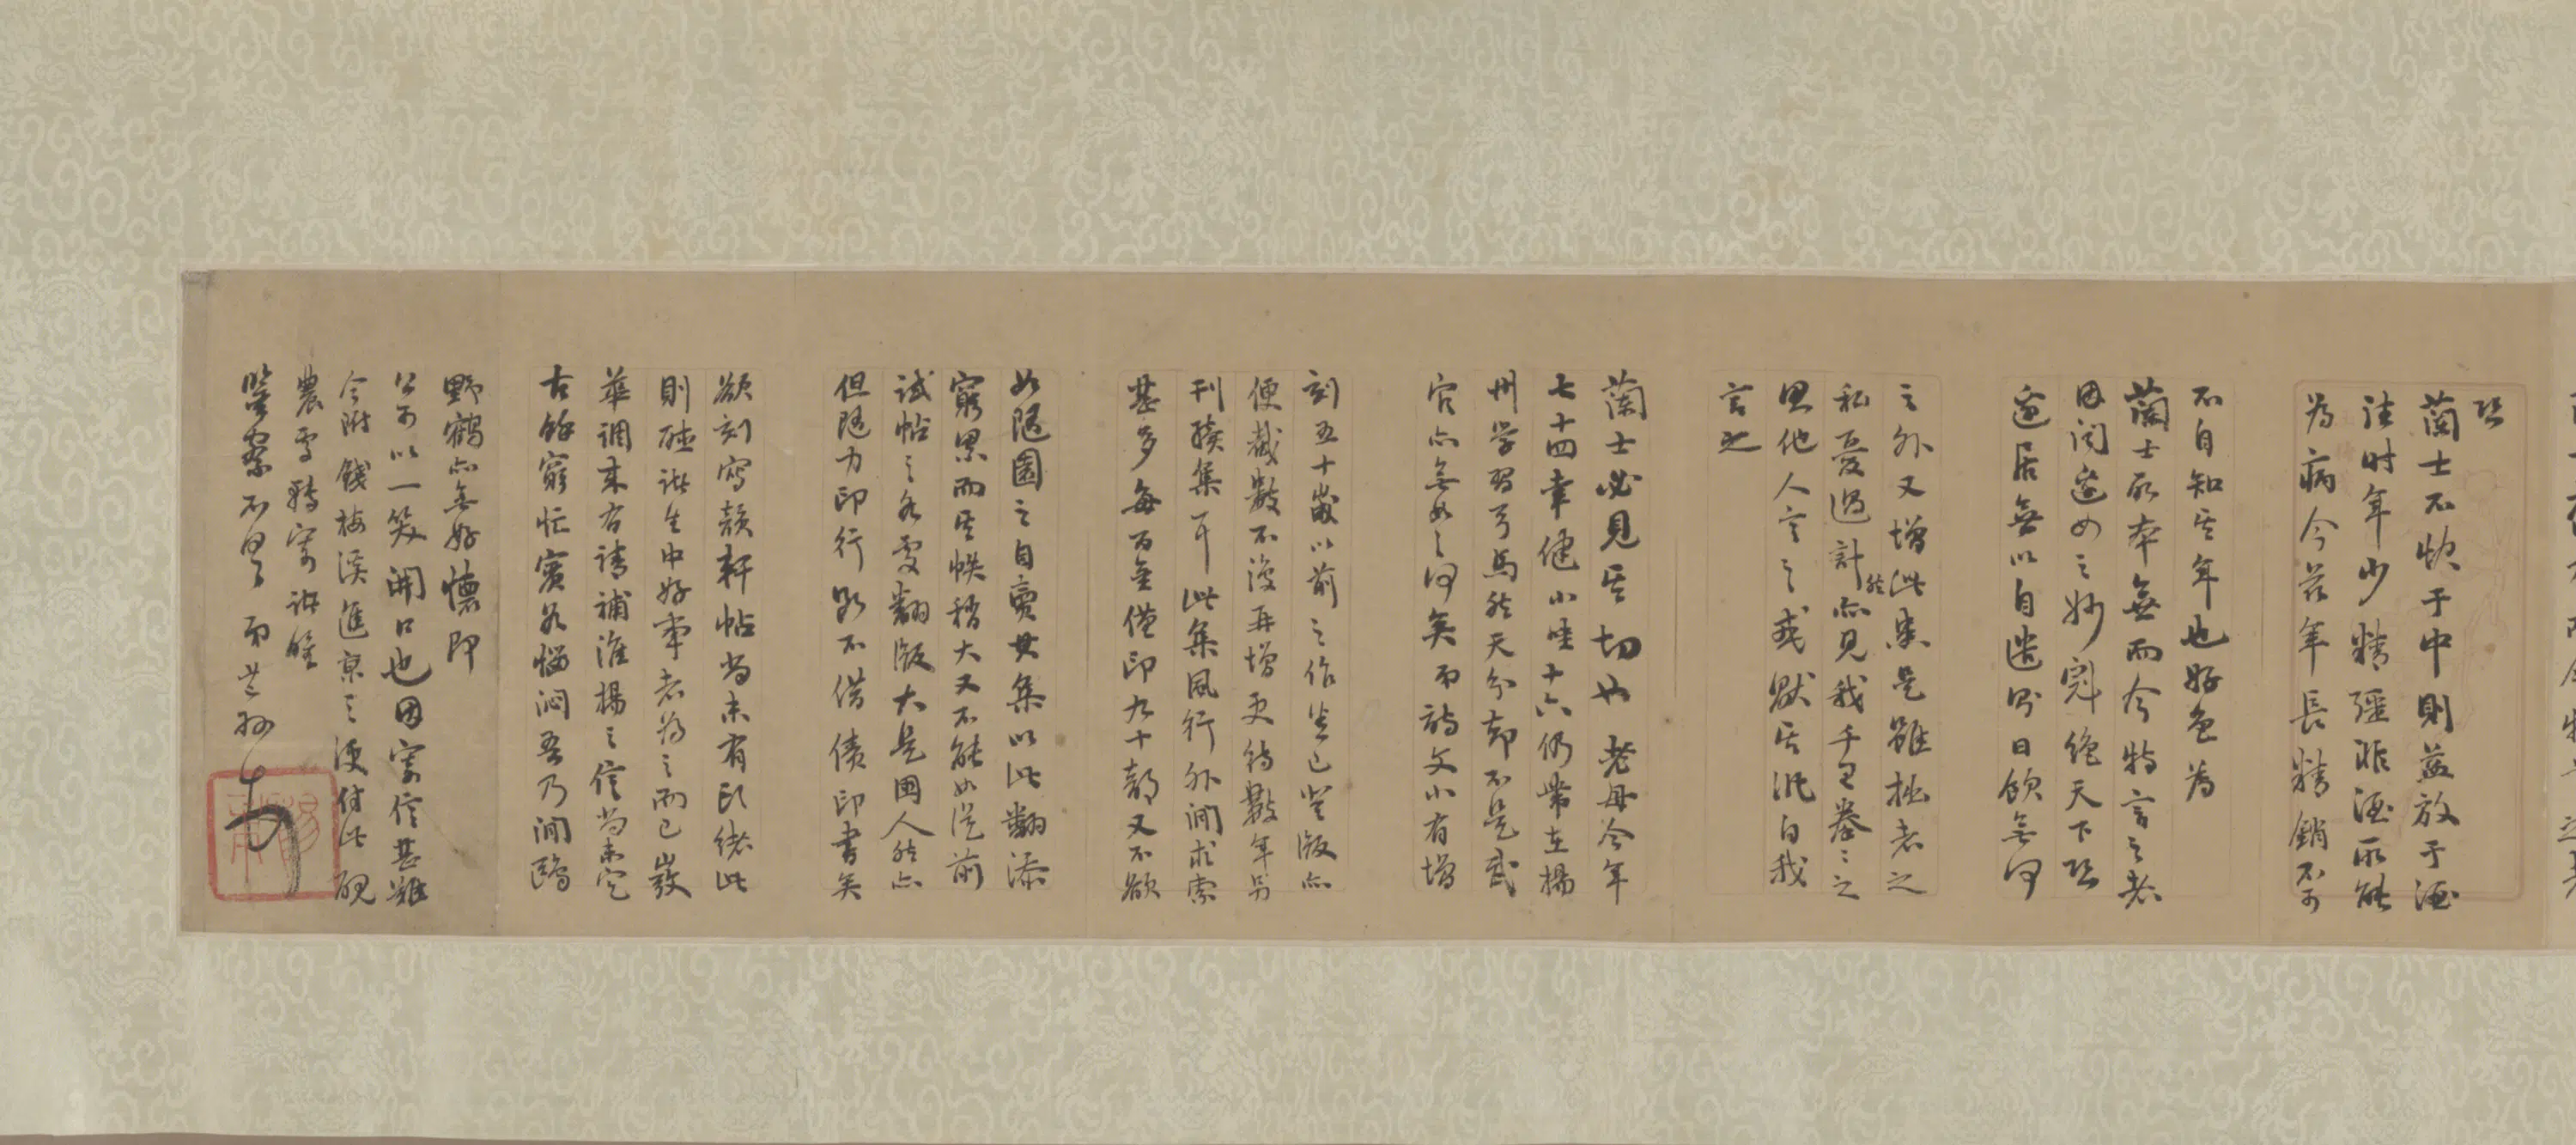 恐
蘭士不快于中則益放于酒
往时年少精彊非酒所能
为病今茲年長精銷不可
不自知其年也好色为
蘭士所本無而今特言之者
因闻邃如之妙寵绝天下恐
邃居無以自遣别日飲無何
之外又增此患是雖拙者之
私憂過計然亦見我千里拳〻之
思他人言之或默其汎自我
言之
蘭士必見其切也 老母今年
七十四幸健小生十六仍帶在揚
州学習弓馬然天分却不是武
官亦無如之何矣 詩文小有增
刻五十歲以前之作业已登版亦
便截數不復再增更待數年另
刊續集耳此集風行外间求索
甚多每百金僅印九十部又不欲
如隨園之自賣其集以此翻添
窮累而其帙稍大又不能如従前
試帖之各处翻版大是困人然亦
但随力印行总不借債印書矣
欲刻寫韻軒帖尚未有頭緒此
則確訴生中好事者为之而已嚴
華調来右請補淮揚之信尚未定
古餘窮忙賓谷惱悶吾乃闻鷗
野鶴亦無好懷即
公可以一笑開口也因寄信甚難
今附錢梅溪進京之便付此硯
農雪轉寄 訴
鑒察不具